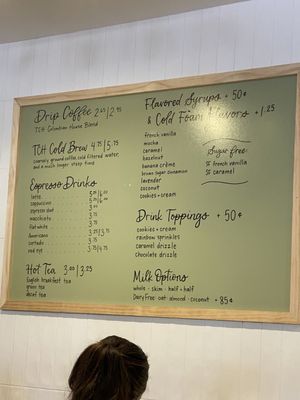 Drip Coffee 2.65 | 2.95
TCH Colombian House Blend
TCH Cold Brew 4.75 | 5.75
coarsely ground coffee, cold filtered water,
and a much longer steep time
Espresso Drinks
latte
cappuccino
espresso shot
macchiato 3.75
flat white 3.75
americano 3.25 | 3.75
cortado 3.75
red eye 3.75 | 4.75
Hot Tea 3.00 | 3.25
English breakfast tea
green tea
decaf tea
Flavored Syrups + 50¢
& Cold Foam Flavors + 1.25
french vanilla
mocha
caramel
hazelnut
banana crème
brown sugar cinnamon
lavender
coconut
cookies + cream
Sugar free:
sf french vanilla
sf caramel
Drink Toppings + 50¢
cookies + cream
rainbow sprinkles
caramel drizzle
chocolate drizzle
Milk Options
whole · skim · half + half
Dairy free: oat · almond · coconut + 85¢